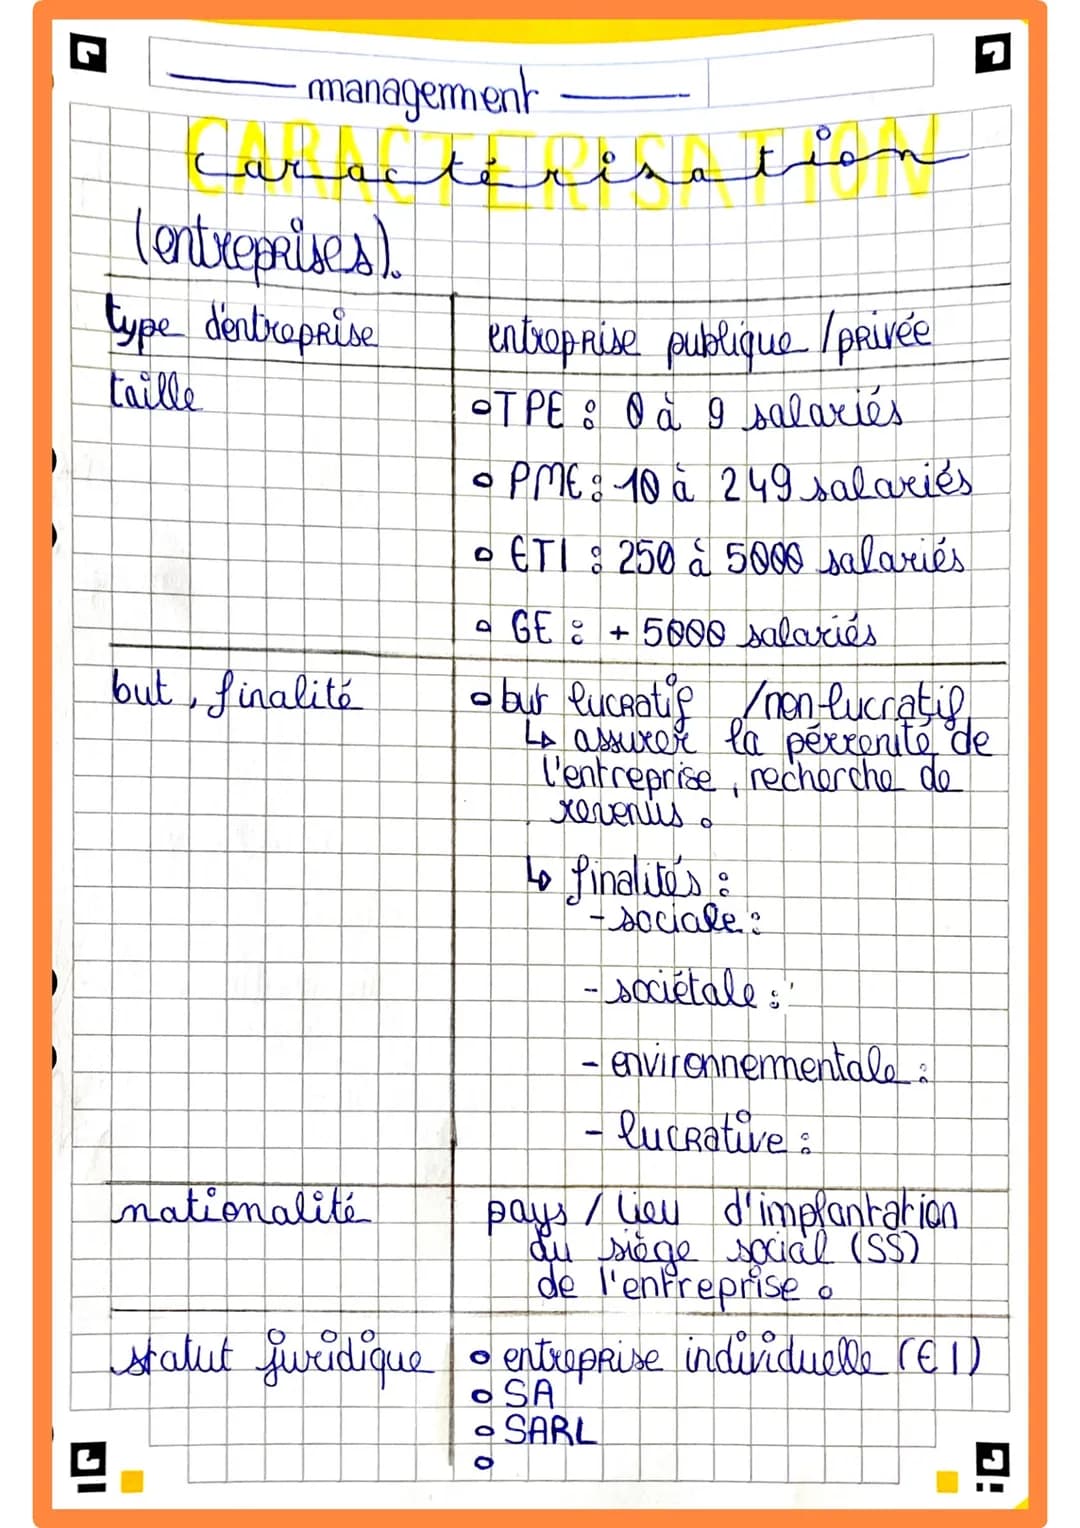 management
CARACTERISATION
Caractérisation
(entreprises).
type d'entreprise
entreprise publique / privée
taille
TPE : 0 à 9 salariés
PME : 10 à 249 salariés
ETI : 250 à 5000 salariés
GE : + 5000 salariés
but, finalité
but lucratif / non-lucratif
↳ assurer la pérrenité de
l'entreprise, recherche de
revenus.
↳ finalités :
- sociale :
- sociétale :
- environnementale :
- lucrative :
nationalité
pays / lieu d'implantation
du siège social (SS)
de l'entreprise.
statut juridique
entreprise individuelle (EI)
SA
SARL